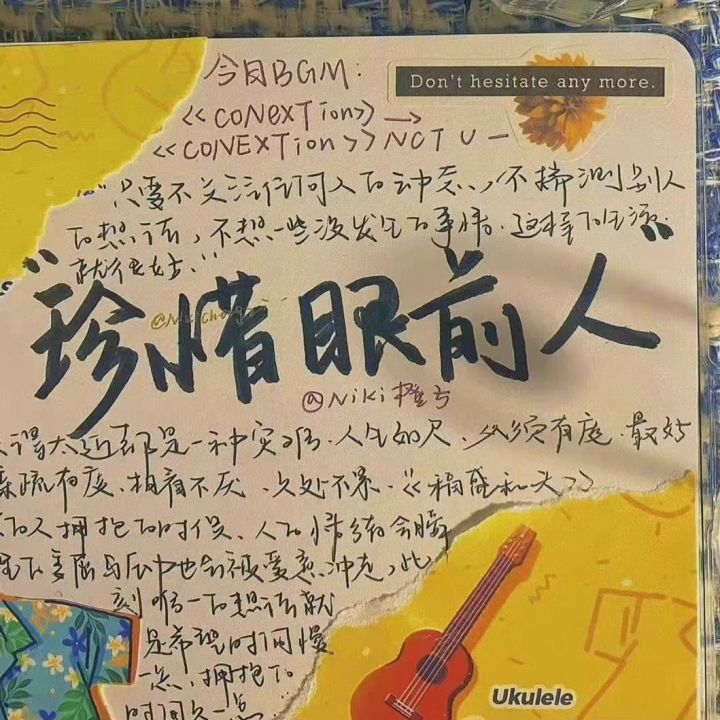 今日BGM:
Don't hesitate any more.
<<CONEXTion>>
<<CONEXTion>> NCT U —
"只要不关注任何人的动态,不揣测别人
的想法,不想一些没发生的事情,这样的生活
就很好."
"珍惜眼前人"
@Niki橙亏
得太近都是一种灾难.人生如尺,必须有度.最好
亲疏有度、相看不厌、久处不累.《稻盛和夫》
的人拥抱的时候、人的情绪会瞬
也会被爱意冲走,此
刻唯一的想法就
是希望时间慢
一点,拥抱的
时间久一点.
Ukulele